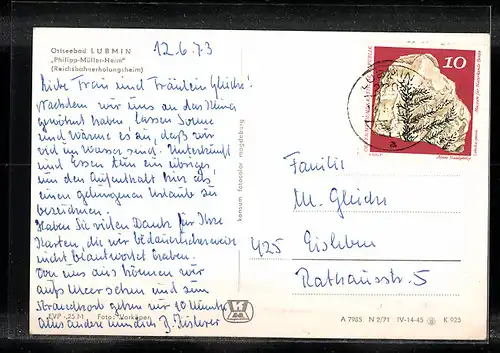 Ostseebad LUBMIN
„Philipp-Müller-Heim"
(Reichsbahnerholungsheim)
12.6.73
Liebe Frau und Fräulein Gleichs!
Nachdem wir uns an das Klima
gewöhnt haben lassen Sonne
und Wärme es zu, daß wir
viel im Wasser sind. Unterkunft
und Essen tun ein übriges,
um den Aufenthalt hier als
einen gelungenen Urlaub zu
bezeichnen.
Haben Sie vielen Dank für Ihre
Karten, die wir bedauerlicherweise
nicht beantwortet haben.
Von uns aus können wir
aufs Meer sehen und zum
Strandkorb gehen wir 10 Minuten
Alles andere mündlich
EVP -,25 M
Foto: Vorköper
konsum fotocolor magdeburg
10
LUBMIN
a
Familie
M. Gleichs
425 Eisleben
Rathausstr. 5
A 7985 N 2/71 IV-14-45 K 925